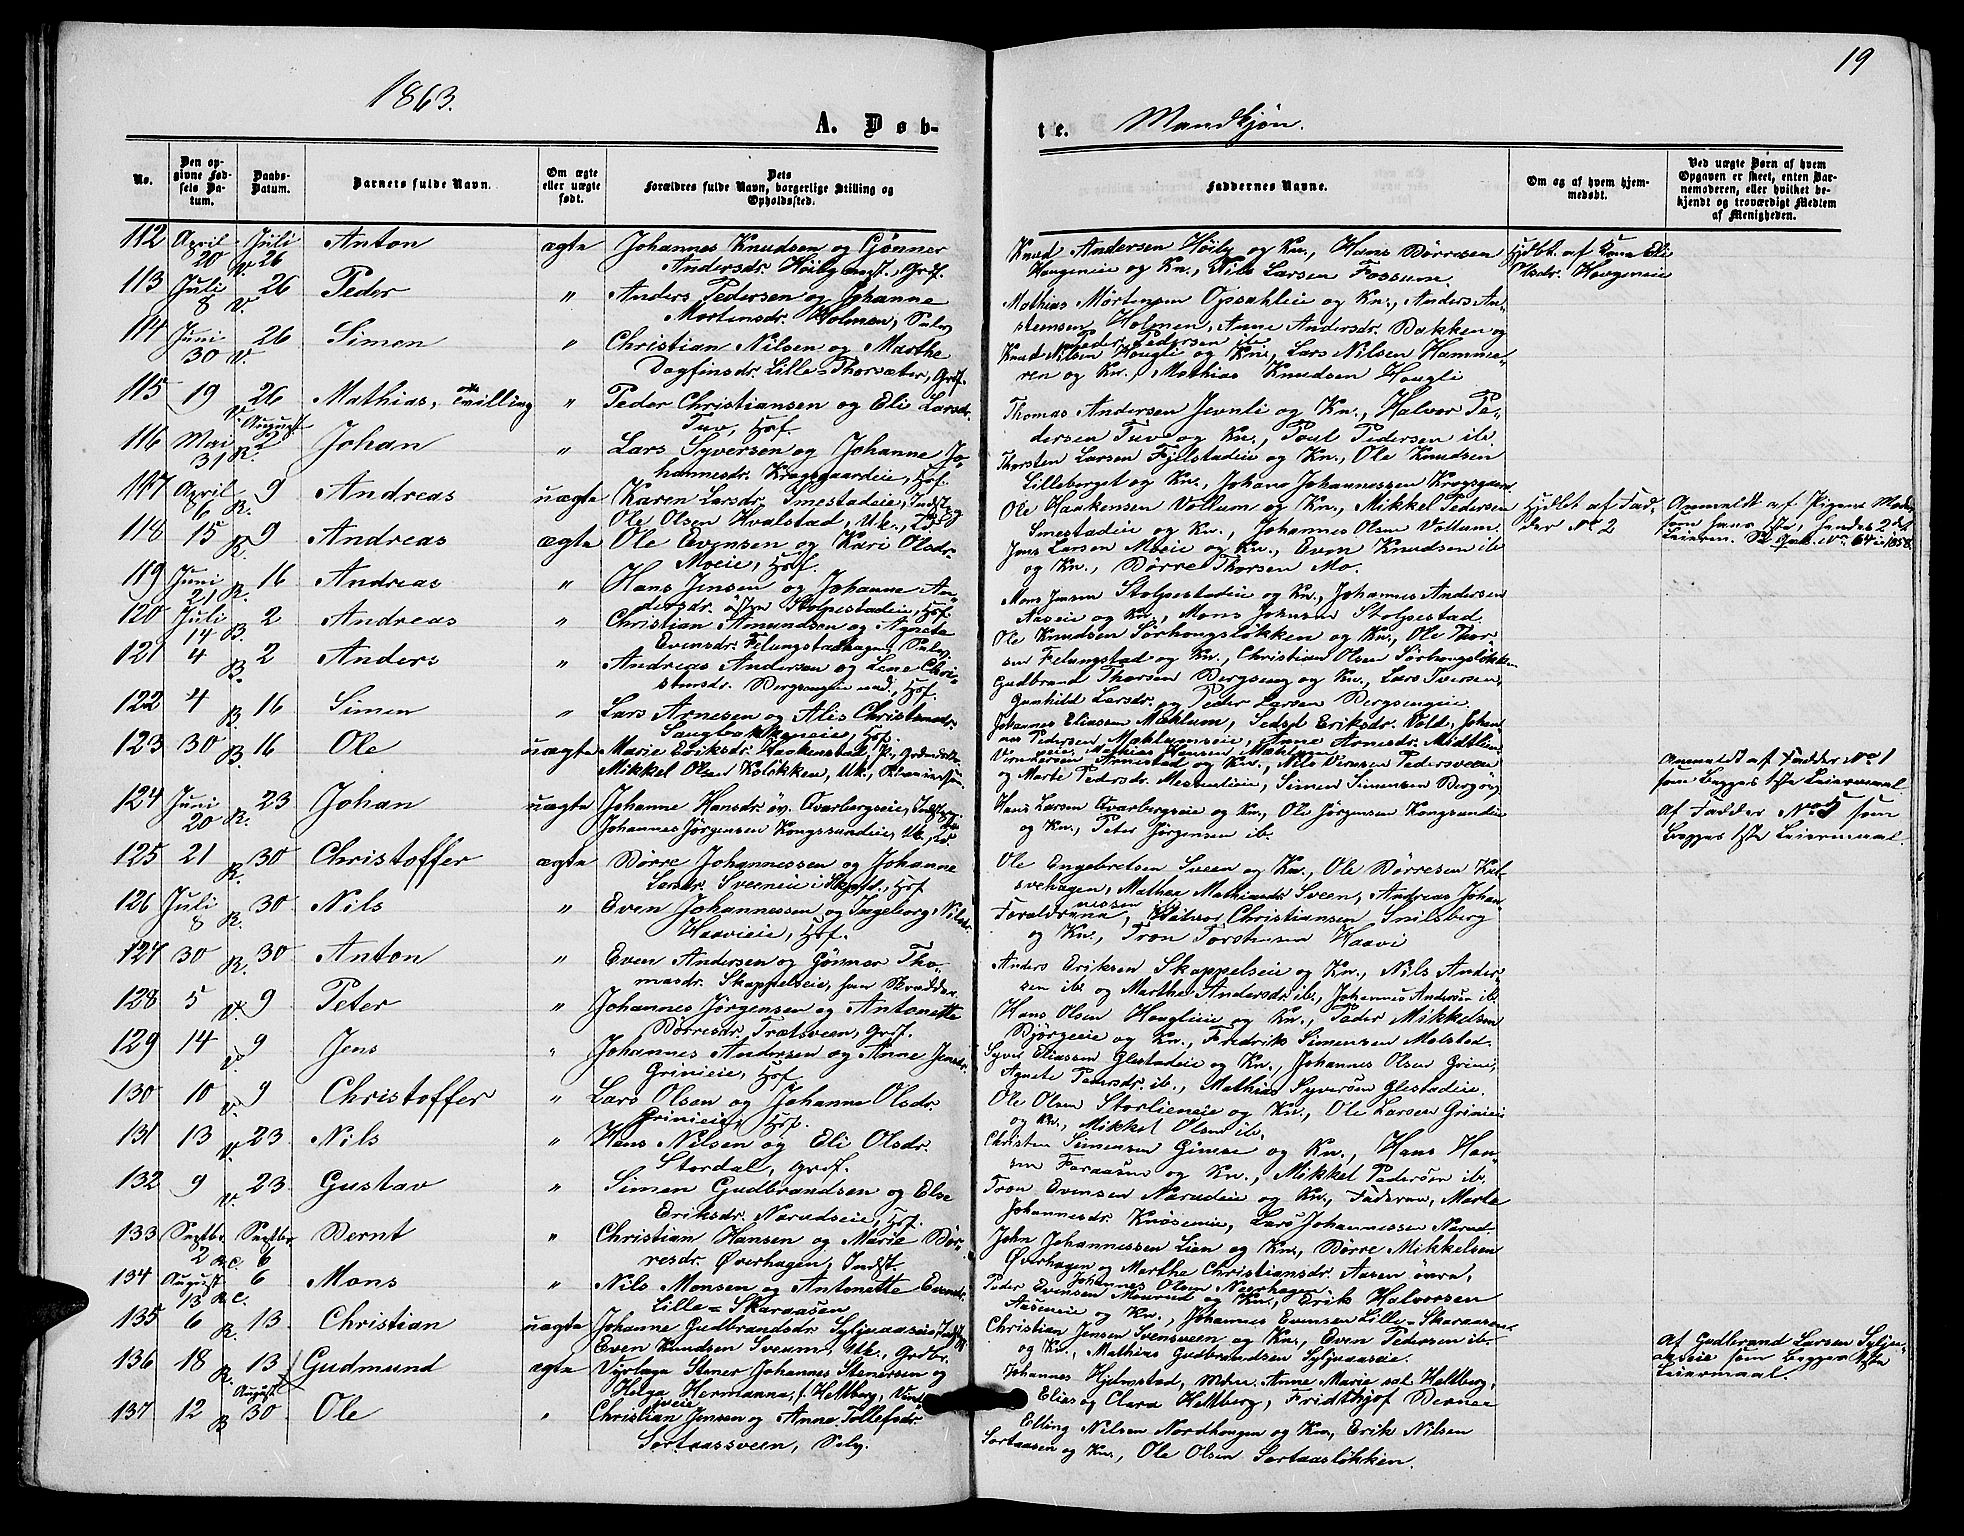 19
1863.
A. Døb-
te. Mandkjøn.
No.
Den op-
givne Fød-
sels Da-
tum.
Daabs-
Datum.
Barnets fulde Navn.
Om ægte
eller uægte
født.
Dets
Forældres fulde Navn, borgerlige Stilling og
Opholdssted.
Faddernes Navne.
Om og af hvem hjem-
medøbt.
Ved uægte Børn af hvem
Opgaven er skeet, enten Bar-
nemoderen, eller hvilket be-
kjendt og troværdigt Medlem
af Menigheden.
112 April 20 Juli 26 Anton ægte Johannes Knudsen og Gjønner
Andersdr. Høiby Grdf.
Knud Andersen Høiby og Kn., Hans Børresen
Haugeneie og Kn., Nils Larsen Fossum.
113 Juli 8 V. 26 Peder " Anders Pedersen og Johanne
Mortensdr. Holmen, Selv.
Mathias Mortensen Opsahleie og Kn., Anders An-
stensen Holmen, Anne Andersdr. Bakken og
Peder Pedersen ib.
114 Juni 30 V. 26 Simen " Christian Nilsen og Marthe
Dagfinsdr. Lille-Thorsæter, Grdf.
Knud Nilsen Hougli og Kn., Lars Nilsen Hamme-
ren og Kn., Mathias Knudsen Hougli
115 19 V. 26 Mathias, Tvilling " Peder Christiansen og Eli Larsdr.
Tuv, Hof.
Thomas Andersen Jevnli og Kn., Halvor Pe-
dersen Tuv og Kn., Poul Pedersen ib.
116 Mai 31 R. August 2 Johan " Lars Syversen og Johanne Jo-
hannesdr. Kragsgaardeie, Hof.
Thorsten Larsen Fjelstadeie og Kn., Ole Knudsen
Lilleberget og Kn., Johans Johannessen Kragsgaard
117 April 6 R. 9 Andreas uægte Karen Larsdr. Smestadeie, Indst. og
Ole Olsen Hvalstad, Uk.,
Ole Haakensen Vollum og Kn., Mikkel Pedersen
Smestadeie og Kn., Johannes Olsen Vollum.
Hjdbt af Fad-
der No 2
Anmeldt af Pigens Moder
118 15 R. 9 Andreas ægte Ole Evensen og Kari Olsdr.
Moeie, Hof.
Jens Larsen Moeie og Kn., Even Knudsen ib.
og Kn., Børre Thorsen Mo.
119 Juni 21 R. 16 Andreas " Hans Jensen og Johanne An-
dersdr. østen Stolpestadeie, Hof.
Mons Jensen Stolpestadeie og Kn., Johannes Andersen
Aaseie og Kn., Mons Johnsen Stolpestad.
120 Juli 14 B. 2 Andreas " Christian Amundsen og Agnete
Evensdr. Felungstadhagen, Selv.
Ole Knudsen Sørhougsløkken og Kn., Ole Thor-
sen Felungstad og Kn., Christian Olsen Sørhougsløkken
121 4 B. 2 Anders " Andreas Andersen og Lene Chri-
stensdr. Bergsengeie ned., Hof.
Gudbrand Thorsen Bergseng og Kn., Lars Iversen,
Gunhild Larsdr. og Peder Larsen Bergsengeie
122 4 B. 16 Simen " Lars Arnesen og Alis Christensdr.
Saugbakkeneie, Hof.
Johannes Eliassen Mæhlum, Sedsel Eriksdr. Vold, Johan-
nes Pedersen Mæhlumseie, Anne Arnesdr. Midtlien-
eie, Mathias Hansen Mæhlum
123 30 B. 16 Ole uægte Marie Eriksdr. Haakenstad P.,
Mikkel Olsen Koløkken, Uk.,
Arnestad og Kn., Nils Pedersveen
og Marte Pedersdr. Mesteneie, Simen Simensen Bergsøy
Anmeldt af Fadder No 1
som Begges 1ste Leiermaal.
124 Juni 20 R. 23 Johan uægte Johanne Hansdr. øv. Qvarbergseie,
Johannes Jørgensen Kongssundeie, Uk.,
Hans Larsen Qvarbergseie og Kn., Ole Jørgensen Kongsundeie
og Kn., Peter Jørgensen ib.
Af Fadder No 5 som
Begges 1ste Leiermaal.
125 21 R. 30 Christoffer ægte Børre Johannessen og Johanne
Larsdr. Sveeneie i Skjold., Hof
Ole Engebretsen Sveen og Kn., Ole Børresen Kal-
svehagen, Mathea Mathiasdr. Sveen, Andreas Johan-
nessen ib.
126 Juli 8 R. 30 Nils " Even Johannessen og Ingeborg Nilsdr.
Haavieie, Hof.
Forældrene, Christiansen Snilsberg
og Kn., Tron Torstensen Haavi
127 30 R. 30 Anton " Even Andersen og Gønner Tho-
masdr. Skappelseie, han Skrædder
Anders Eriksen Skappelseie og Kn., Nils Ander-
sen ib. og Marthe Andersdr. ib., Johannes Andersen ib.
128 5 V. 9 Peter " Johannes Jörgensen og Antonette
Børresdr. Trætsveen, Grdf.
Hans Olsen Hougleie og Kn., Peder Mikkelsen
Bjørgeeie og Kn., Fredrik Simensen Molstad.
129 14 V. 9 Jens " Johannes Andersen og Anne Jensdr.
Grinieie, Hof
Syver Eliassen Glestadeie og Kn., Johannes Olsen Grini,
Agnete Pedersdr. ib., Mathias Syversen Glestadeie.
130 10 V. 9 Christoffer " Lars Olsen og Johanne Olsdr.
Grinieie, Hof.
Ole Olsen Storlieneie og Kn., Ole Larsen Grinieie
og Kn., Mikkel Olsen ib.
131 13 V. 23 Nils " Hans Nilsen og Eli Olsdr.
Stordal, Grdf.
Christen Simensen Gimse og Kn., Hans Han-
sen Foraasen og Kn., Mikkel Pedersen ib.
132 9 V. 23 Gustav " Simen Gudbrandsen og Else
Eriksdr. Narudseie, Hof.
Tron Evensen Narudeie og Kn., Faderen, Marte
Johannesdr. Knøseneie, Lars Johannessen Narud.
133 Septbr. 2 Septbr. 6 Bernt " Christian Hansen og Marie Bør-
resdr. Øverhagen, Indst.
John Johannessen Lien og Kn., Børre Mikkelsen
Øverhagen og Marthe Christiansdr. Aasen øvre,
Johannes Olsen Nerrhagen
134 August 13 6 Mons " Nils Monsen og Antonette Evensdr.
Lille-Skaraasen
Peder Evensen Maurud og Kn., Erik Halvorsen
Aaseneie og Kn., Johannes Evensen Lille-Skaraasen
135 6 R. 13 Christian uægte Johanne Gudbrandsdr. Syljuaaseie
Even Knudsen Sveum, Uk., Grdbr.
Christian Jensen Svensveen og Kn., Even Pedersen ib.
og Kn., Mathias Gudbrandsen Syljuaaseie.
Af Gudbrand Larsen Sylju-
aaseie som Begges 1ste
Leiermaal.
136 18 R. 13 Gudmund ægte Stener Johannes Stenersen og
Helga Hermanna, f. Heltberg,
Johannes Hjelmstad, Anne Marie sal. Heltberg,
Elias og Clara Heltberg, Fridthjof Berner
137 12 B August 30 Ole " Christian Jensen og Anne Tollefsdr.
Sortaassveen, Selv.
Elling Nilsen Nordhougen og Kn., Erik Nilsen
Sortaasen og Kn., Ole Olsen Sortaasløkken.